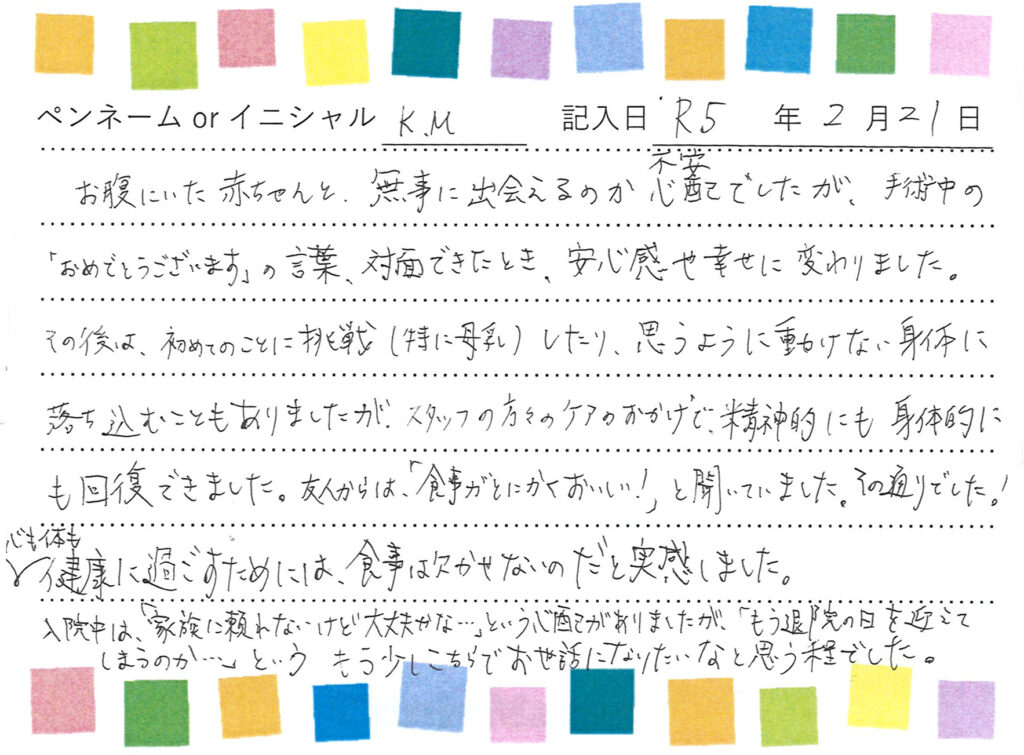 ペンネーム or イニシャル K.M 記入日 R5 年 2 月 21 日
不安
お腹にいた赤ちゃんと、無事に出会えるのか心配でしたが、手術中の
「おめでとうございます」の言葉、対面できたとき、安心感や幸せに変わりました。
その後は、初めてのことに挑戦(特に母乳)したり、思うように動けない身体に
落ち込むこともありましたが、スタッフの方々のケアのおかげで、精神的にも身体的に
も回復できました。友人からは、「食事がとにかくおいしい!」と聞いていました。その通りでした!
心も体も
健康に過ごすためには、食事は欠かせないのだと実感しました。
入院中は、「家族に頼れないけど大丈夫かな…」という心配がありましたが、「もう退院の日を迎えて
しまうのか…」という もう少しこちらでお世話になりたいなと思う程でした。